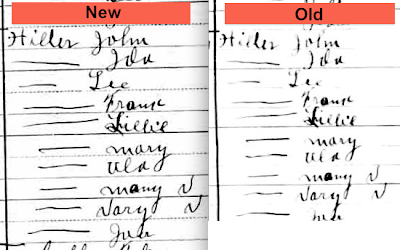 New
Hiller John
Ida
Lee
Frank
Lillie
Mary
Many V
Vary V
Old
Hiller John
Ida
Lee
Frank
Lillie
Mary
Many V
Vary V